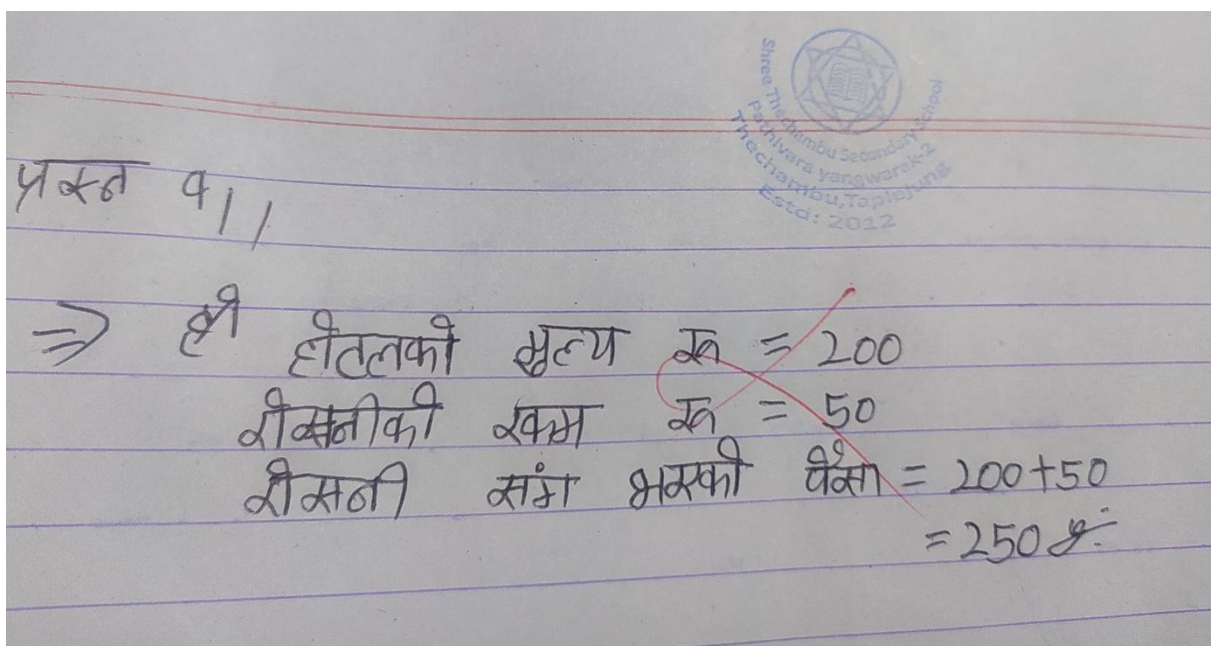 Shree Thechambu Secondary School
Pathivara yangwarak-2
Thechambu, Taplejung
Estd: 2012
प्रश्न १//
=> होटलको मूल्य रू = 200
रोसनीको रकम रू = 50
रोसनी संग भएको पैसा = 200+50
= 250